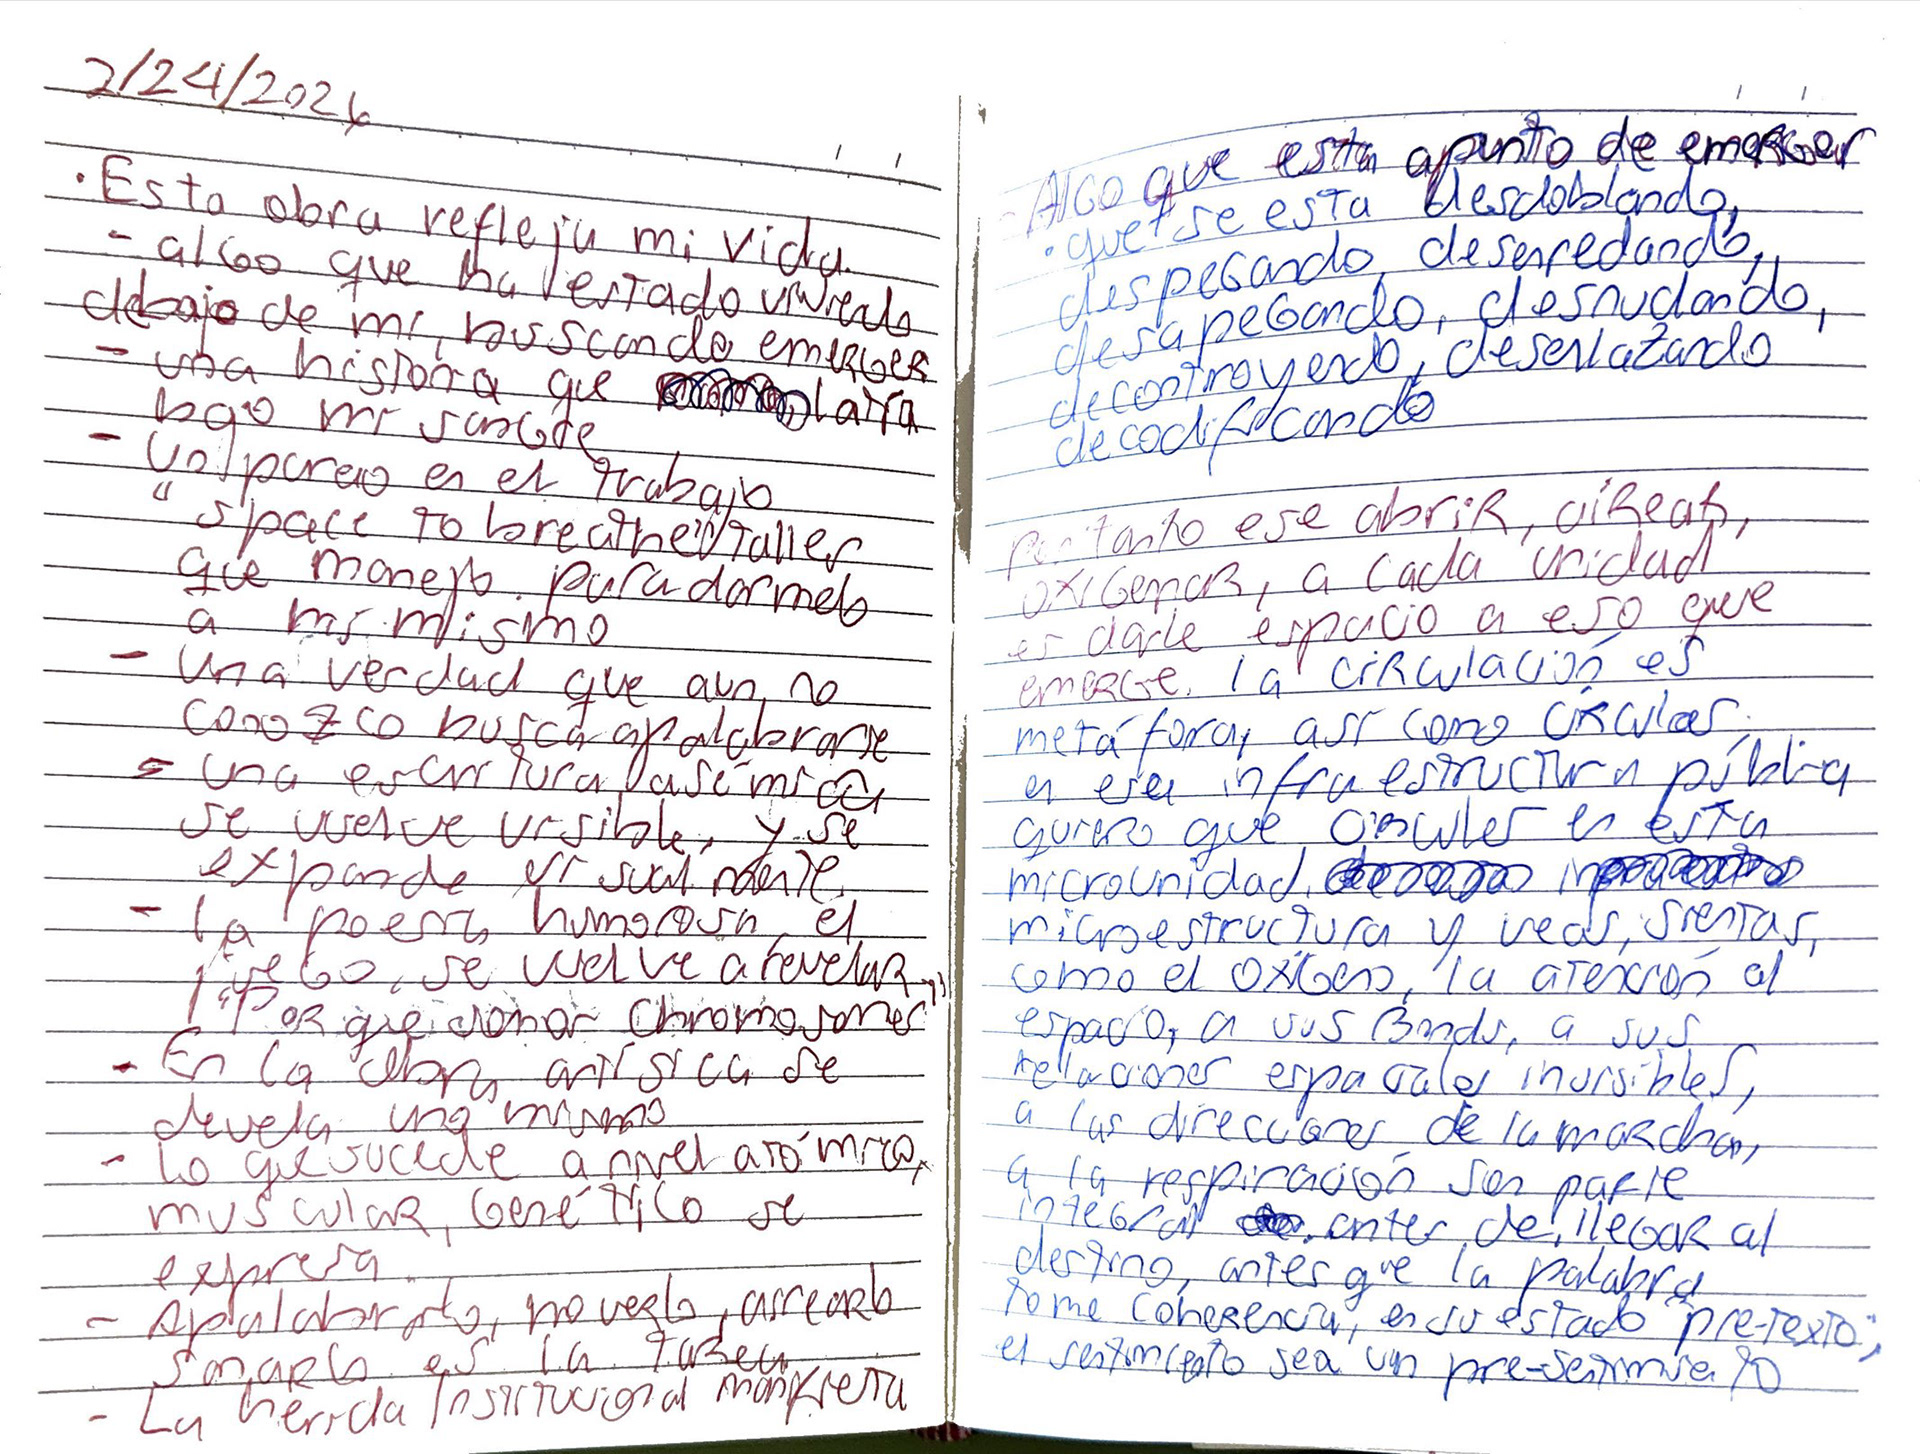 2/24/2026
· Esta obra refleja mi vida.
- algo que ha estado viviendo
debajo de mi, buscando emerger
- una historia que latía
bajo mi sangre
- Un pareo en el trabajo
"space to breathe" taller
que manejo. para darmelo
a mi mismo
- Una verdad que aun no
conozco busca apalabrarse
- una escritura asémica
se vuelve visible, y se
expande visualmente.
- La poesía humorosa, el
juego, se vuelve a revelar
"Por que donar Chromosomes"
- En la obra artísica se
devela uno mismo
- Lo que sucede a nivel atómico,
muscular, genético se
expresa.
- Apalabrarlo, moverlo, airearlo
sonarlo es la tarea
- La herida Institucional manifiesta
- Algo que esta apunto de emerger
· que se esta desdoblando,
despegando, desenredando,
desapegando, desnudando,
decontruyendo, desenlazando
decodificando
por tanto ese abrir, airear,
oxigenar, a cada unidad
es darle espacio a eso que
emerge. la circulación es
metáfora, así como circulas
en esa infraestructura pública
quiero que circules en esta
microunidad,
microestructura y veas, sientas,
como el oxigeno, la atención al
espacio, a sus Bonds, a sus
relaciones espaciales invisibles,
a las direcciones de la marcha,
a la respiración son parte
integral antes de llegar al
destino, antes que la palabra
tome coherencia, en su estado "pre-texto",
el sentimiento sea un pre-sentimiento